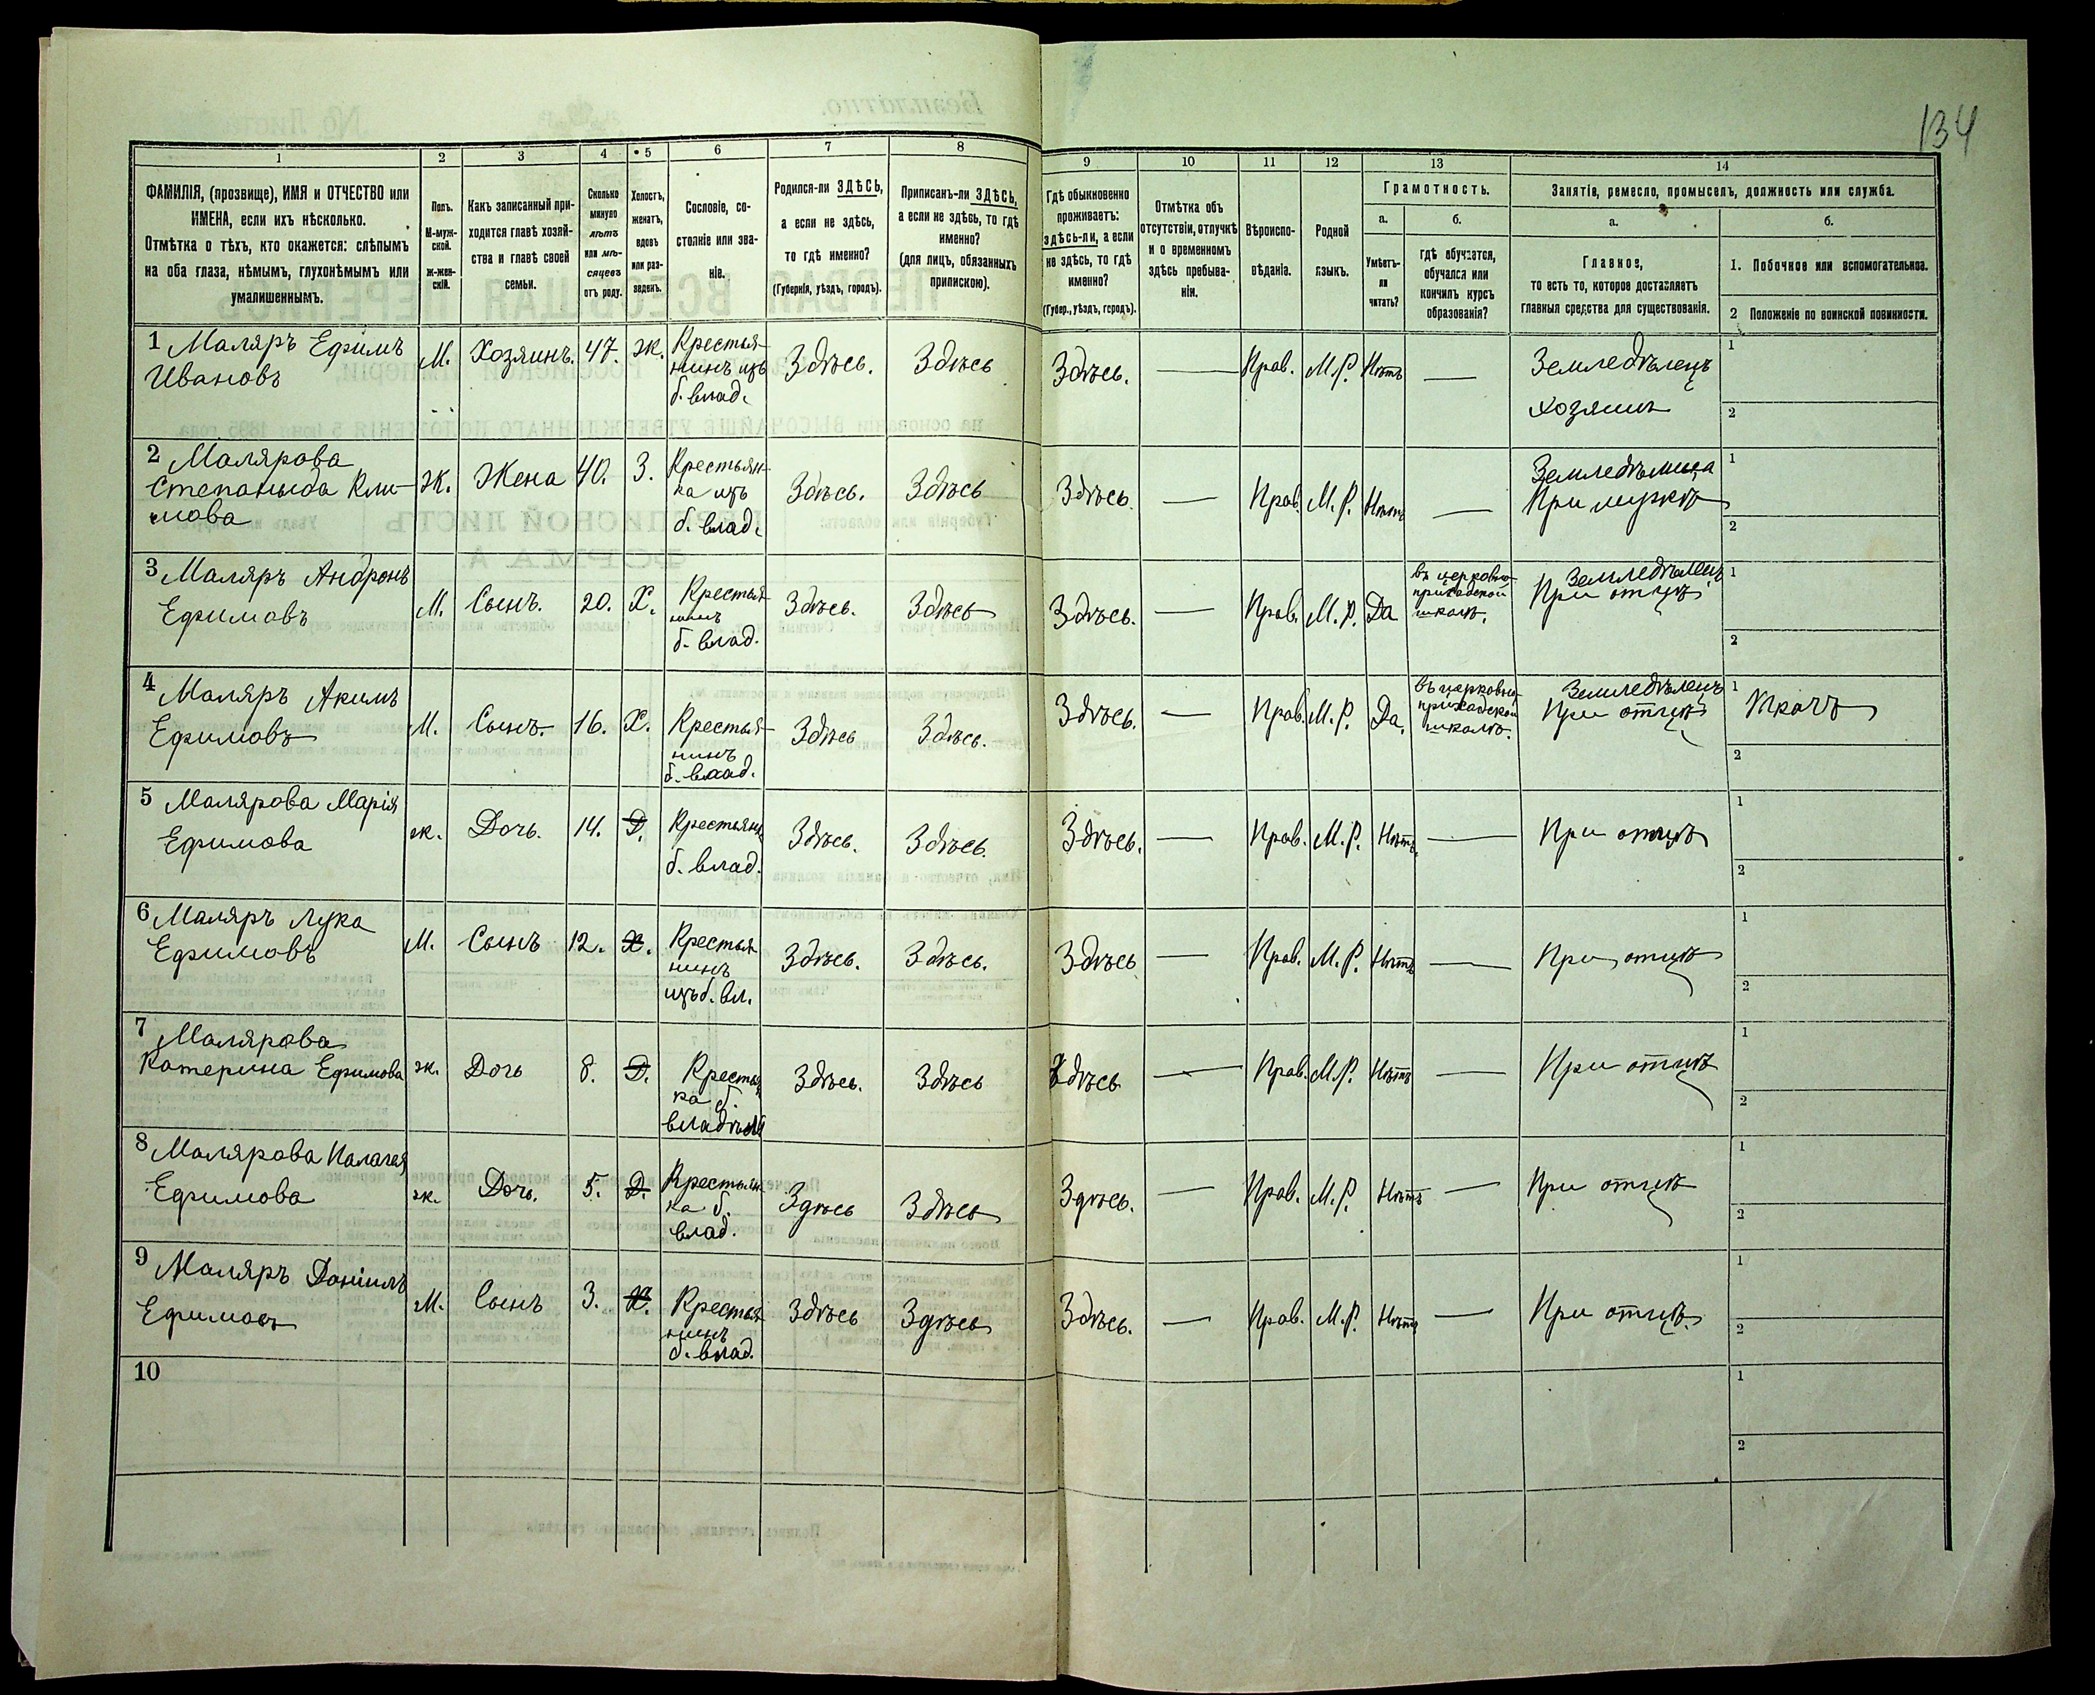 134
1 2 3 4 5 6 7 8 9 10 11 12 13 14
ФАМИЛІЯ, (прозвище), ИМЯ и ОТЧЕСТВО или
ИМЕНА, если ихъ нѣсколько.
Отмѣтка о тѣхъ, кто окажется: слѣпымъ
на оба глаза, нѣмымъ, глухонѣмымъ или
умалишеннымъ.
Полъ.
М-муж-
ской.
ж-жен-
скій.
Какъ записанный при-
ходится главѣ хозяй-
ства и главѣ своей
семьи.
Сколько
минуло
лѣтъ
или мѣ-
сяцевъ
отъ роду.
Холостъ,
женатъ,
вдовъ
или раз-
веденъ.
Сословіе, со-
стояніе или зва-
ніе.
Родился-ли ЗДѢСЬ,
а если не здѣсь,
то гдѣ именно?
(Губернія, уѣздъ, городъ).
Приписанъ-ли ЗДѢСЬ,
а если не здѣсь, то гдѣ
именно?
(для лицъ, обязанныхъ
припискою).
Гдѣ обыкновенно
проживаетъ:
здѣсь-ли, а если
не здѣсь, то гдѣ
именно?
(Губер., уѣздъ, городъ).
Отмѣтка объ
отсутствіи, отлучкѣ
и о временномъ
здѣсь пребыва-
ніи.
Вѣроиспо-
вѣданіе.
Родной
языкъ.
Грамотность.
а.
Умѣетъ-
ли
читать?
б.
гдѣ обучается,
обучался или
кончилъ курсъ
образованія?
Занятіе, ремесло, промыселъ, должность или служба.
а.
Главное,
то есть то, которое доставляетъ
главныя средства для существованія.
б.
1. Побочное или вспомогательное.
2 Положеніе по воинской повинности.
1 Маляръ Ефимъ
Ивановъ
М. Хозяинъ. 47. Ж.
Крестья-
нинъ изъ
б. влад.
Здѣсь. Здѣсь Здѣсь. — Прав. М.Р. Нѣтъ —
Земледѣлецъ
хозяинъ
1
2
2 Малярова
Степанида Кли-
мова
Ж. Жена 40. З.
Крестьян-
ка изъ
б. влад.
Здѣсь. Здѣсь Здѣсь — Прав. М.Р. Нѣтъ —
Земледѣлица
При мужѣ
1
2
3 Маляръ Андронъ
Ефимовъ
М. Сынъ. 20. Х.
Крестья-
нинъ
б. влад.
Здѣсь. Здѣсь Здѣсь. — Прав. М.Р. Да
въ церковно-
приходской
школѣ.
Земледѣлецъ
При отцѣ
1
2
4 Маляръ Акимъ
Ефимовъ
М. Сынъ. 16. Х.
Крестья-
нинъ
б. влад.
Здѣсь Здѣсь. Здѣсь. — Прав. М.Р. Да.
въ церковно-
приходской
школѣ.
Земледѣлецъ
При отцѣ
1 Ткачъ
2
5 Малярова Марія
Ефимова
ж. Дочь. 14. Д.
Крестьянк
б. влад.
Здѣсь. Здѣсь. Здѣсь. — Прав. М.Р. Нѣтъ. — При отцѣ
1
2
6 Маляръ Лука
Ефимовъ
М. Сынъ 12. Х.
Крестья-
нинъ
изъ б. вл.
Здѣсь. Здѣсь. Здѣсь — Прав. М.Р. Нѣтъ — При отцѣ
1
2
7 Малярова
Катерина Ефимова
ж. Дочь 8. Д.
Крестьян
ка б.
владѣл
Здѣсь. Здѣсь Здѣсь — Прав. М.Р. Нѣтъ — При отцѣ
1
2
8 Малярова Палагея
Ефимова
ж. Дочь. 5. Д.
Крестьян-
ка б.
влад.
Здѣсь Здѣсь Здѣсь. — Прав. М.Р. Нѣтъ — При отцѣ
1
2
9 Маляръ Даніилъ
Ефимовъ
М. Сынъ 3. Х.
Крестья-
нинъ
б. влад.
Здѣсь Здѣсь Здѣсь. — Прав. М.Р. Нѣтъ — При отцѣ.
1
2
10
1
2